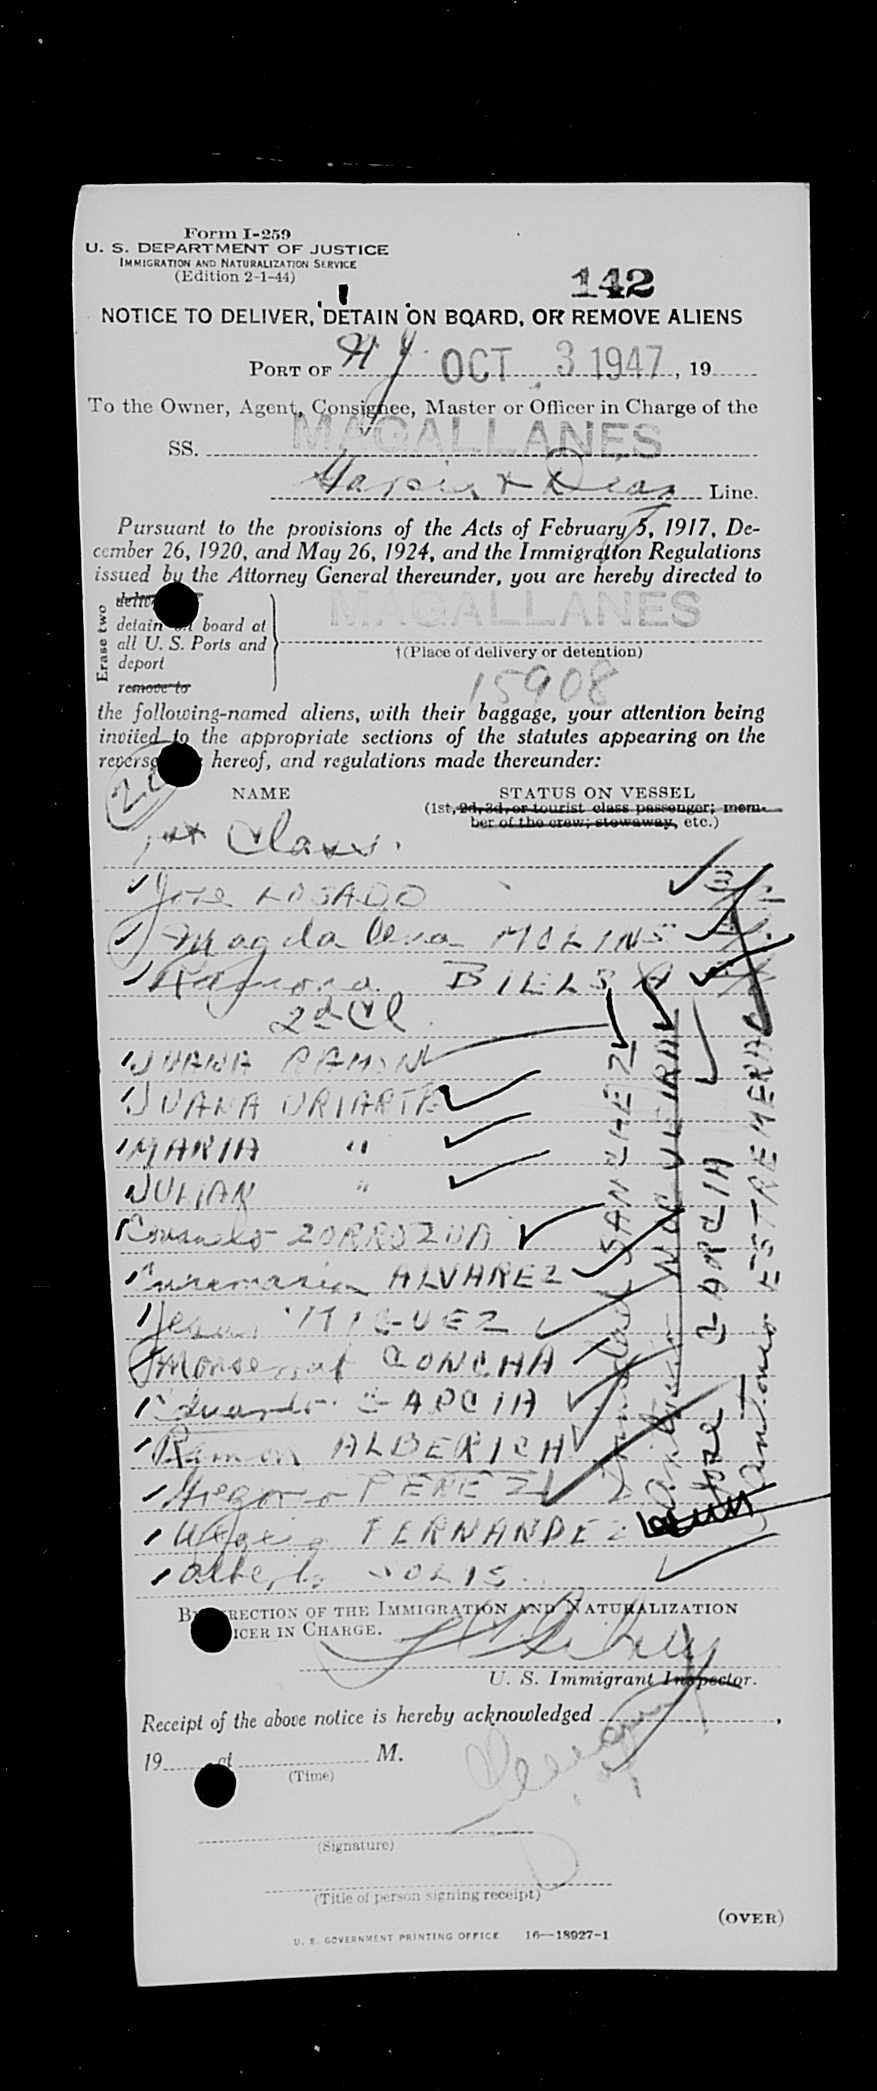 Form I-259
U. S. DEPARTMENT OF JUSTICE
IMMIGRATION AND NATURALIZATION SERVICE
(Edition 2-1-44)
142
NOTICE TO DELIVER, DETAIN ON BOARD, OR REMOVE ALIENS
PORT OF N Y OCT 3 1947, 19
To the Owner, Agent, Consignee, Master or Officer in Charge of the
SS. MAGALLANES
Garcia & Diaz Line.
Pursuant to the provisions of the Acts of February 5, 1917, De-
cember 26, 1920, and May 26, 1924, and the Immigration Regulations
issued by the Attorney General thereunder, you are hereby directed to
Erase two
detain on board at
all U. S. Ports and
deport
remove to
MAGALLANES
†(Place of delivery or detention)
15908
the following-named aliens, with their baggage, your attention being
invited to the appropriate sections of the statutes appearing on the
reverse hereof, and regulations made thereunder:
NAME STATUS ON VESSEL
(1st, 2d, 3d, or tourist class passenger; mem-
ber of the crew; stowaway, etc.)
1st Class.
Jose LOSADO
Magdalena MOLINS
Ramona BILLSA
2d Cl.
JUANA RAMON
JUANA URIARTE
MARIA "
JULIAN "
Consuelo ZORROZUA
ALVAREZ
Jesus MIGUEZ
Monserrat CONCHA
Eduardo GARCIA
Ramon ALBERICH
Gregorio PEREZ
FERNANDEZ
Alberto SOLIS
Trinidad SANCHEZ
NOGUEIRA
Jose GARCIA
Antonio ESTREMERA
BY DIRECTION OF THE IMMIGRATION AND NATURALIZATION
OFFICER IN CHARGE.
U. S. Immigrant Inspector.
Receipt of the above notice is hereby acknowledged ,
19 at M.
(Time)
(Signature)
(Title of person signing receipt)
(OVER)
U. S. GOVERNMENT PRINTING OFFICE 16—18927-1